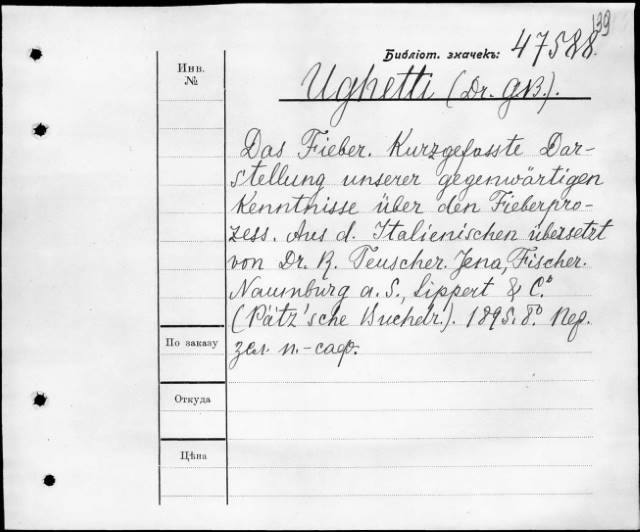 139
Библіот. значекъ: 47588.
Инв.
№
Ughetti (Dr. G.B.).
Das Fieber. Kurzgefasste Dar-
stellung unserer gegenwärtigen
Kenntnisse über den Fieberpro-
zess. Aus d. Italienischen übersetzt
von Dr. R. Teuscher. Jena, Fischer.
Naumburg a. S., Lippert & C.º
(Pätz'sche Buchdr.). 1895. 8º. Пер.
зел. п.-саф.
По заказу
Откуда
Цѣна